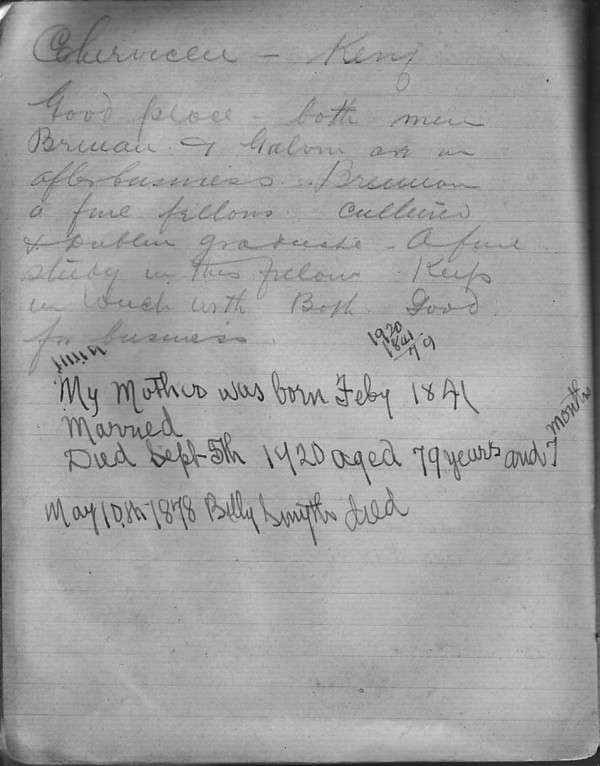 Cahirciveen - Kerry
Good place - both men
Brennan & Galvin are in
after business. Brennan
a fine fellow cultured
& Dublin graduate - A fine
study in this fellow Keep
in touch with Both Good
for business.
1920
1841
79
My Mother was born Feby 1841
Married
Died Sept 5th 1920 aged 79 years and 7 months
May 10th 1878 Billy Smyths died